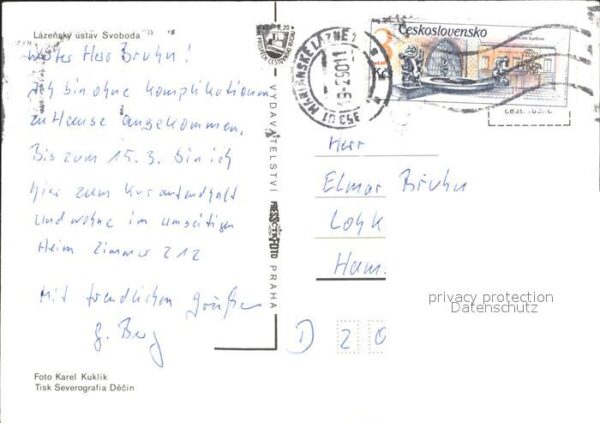 Lázeňský ústav Svoboda
Werter Herr Bruhn!
Ich bin ohne Komplikationen
zu Hause angekommen.
Bis zum 15.3. bin ich
hier zum Kuraufenthalt
und wohne im umseitigen
Heim Zimmer 212
Mit freundlichen Grüßen
G. Berg
Foto Karel Kuklík
Tisk Severografia Děčín
VYDAVATELSTVÍ
PRESSFOTO
PRAHA
353 01 MARIÁNSKÉ LÁZNĚ 1
Československo
3
Herr
Elmar Bruhn
Ham.
privacy protection
Datenschutz
D 20